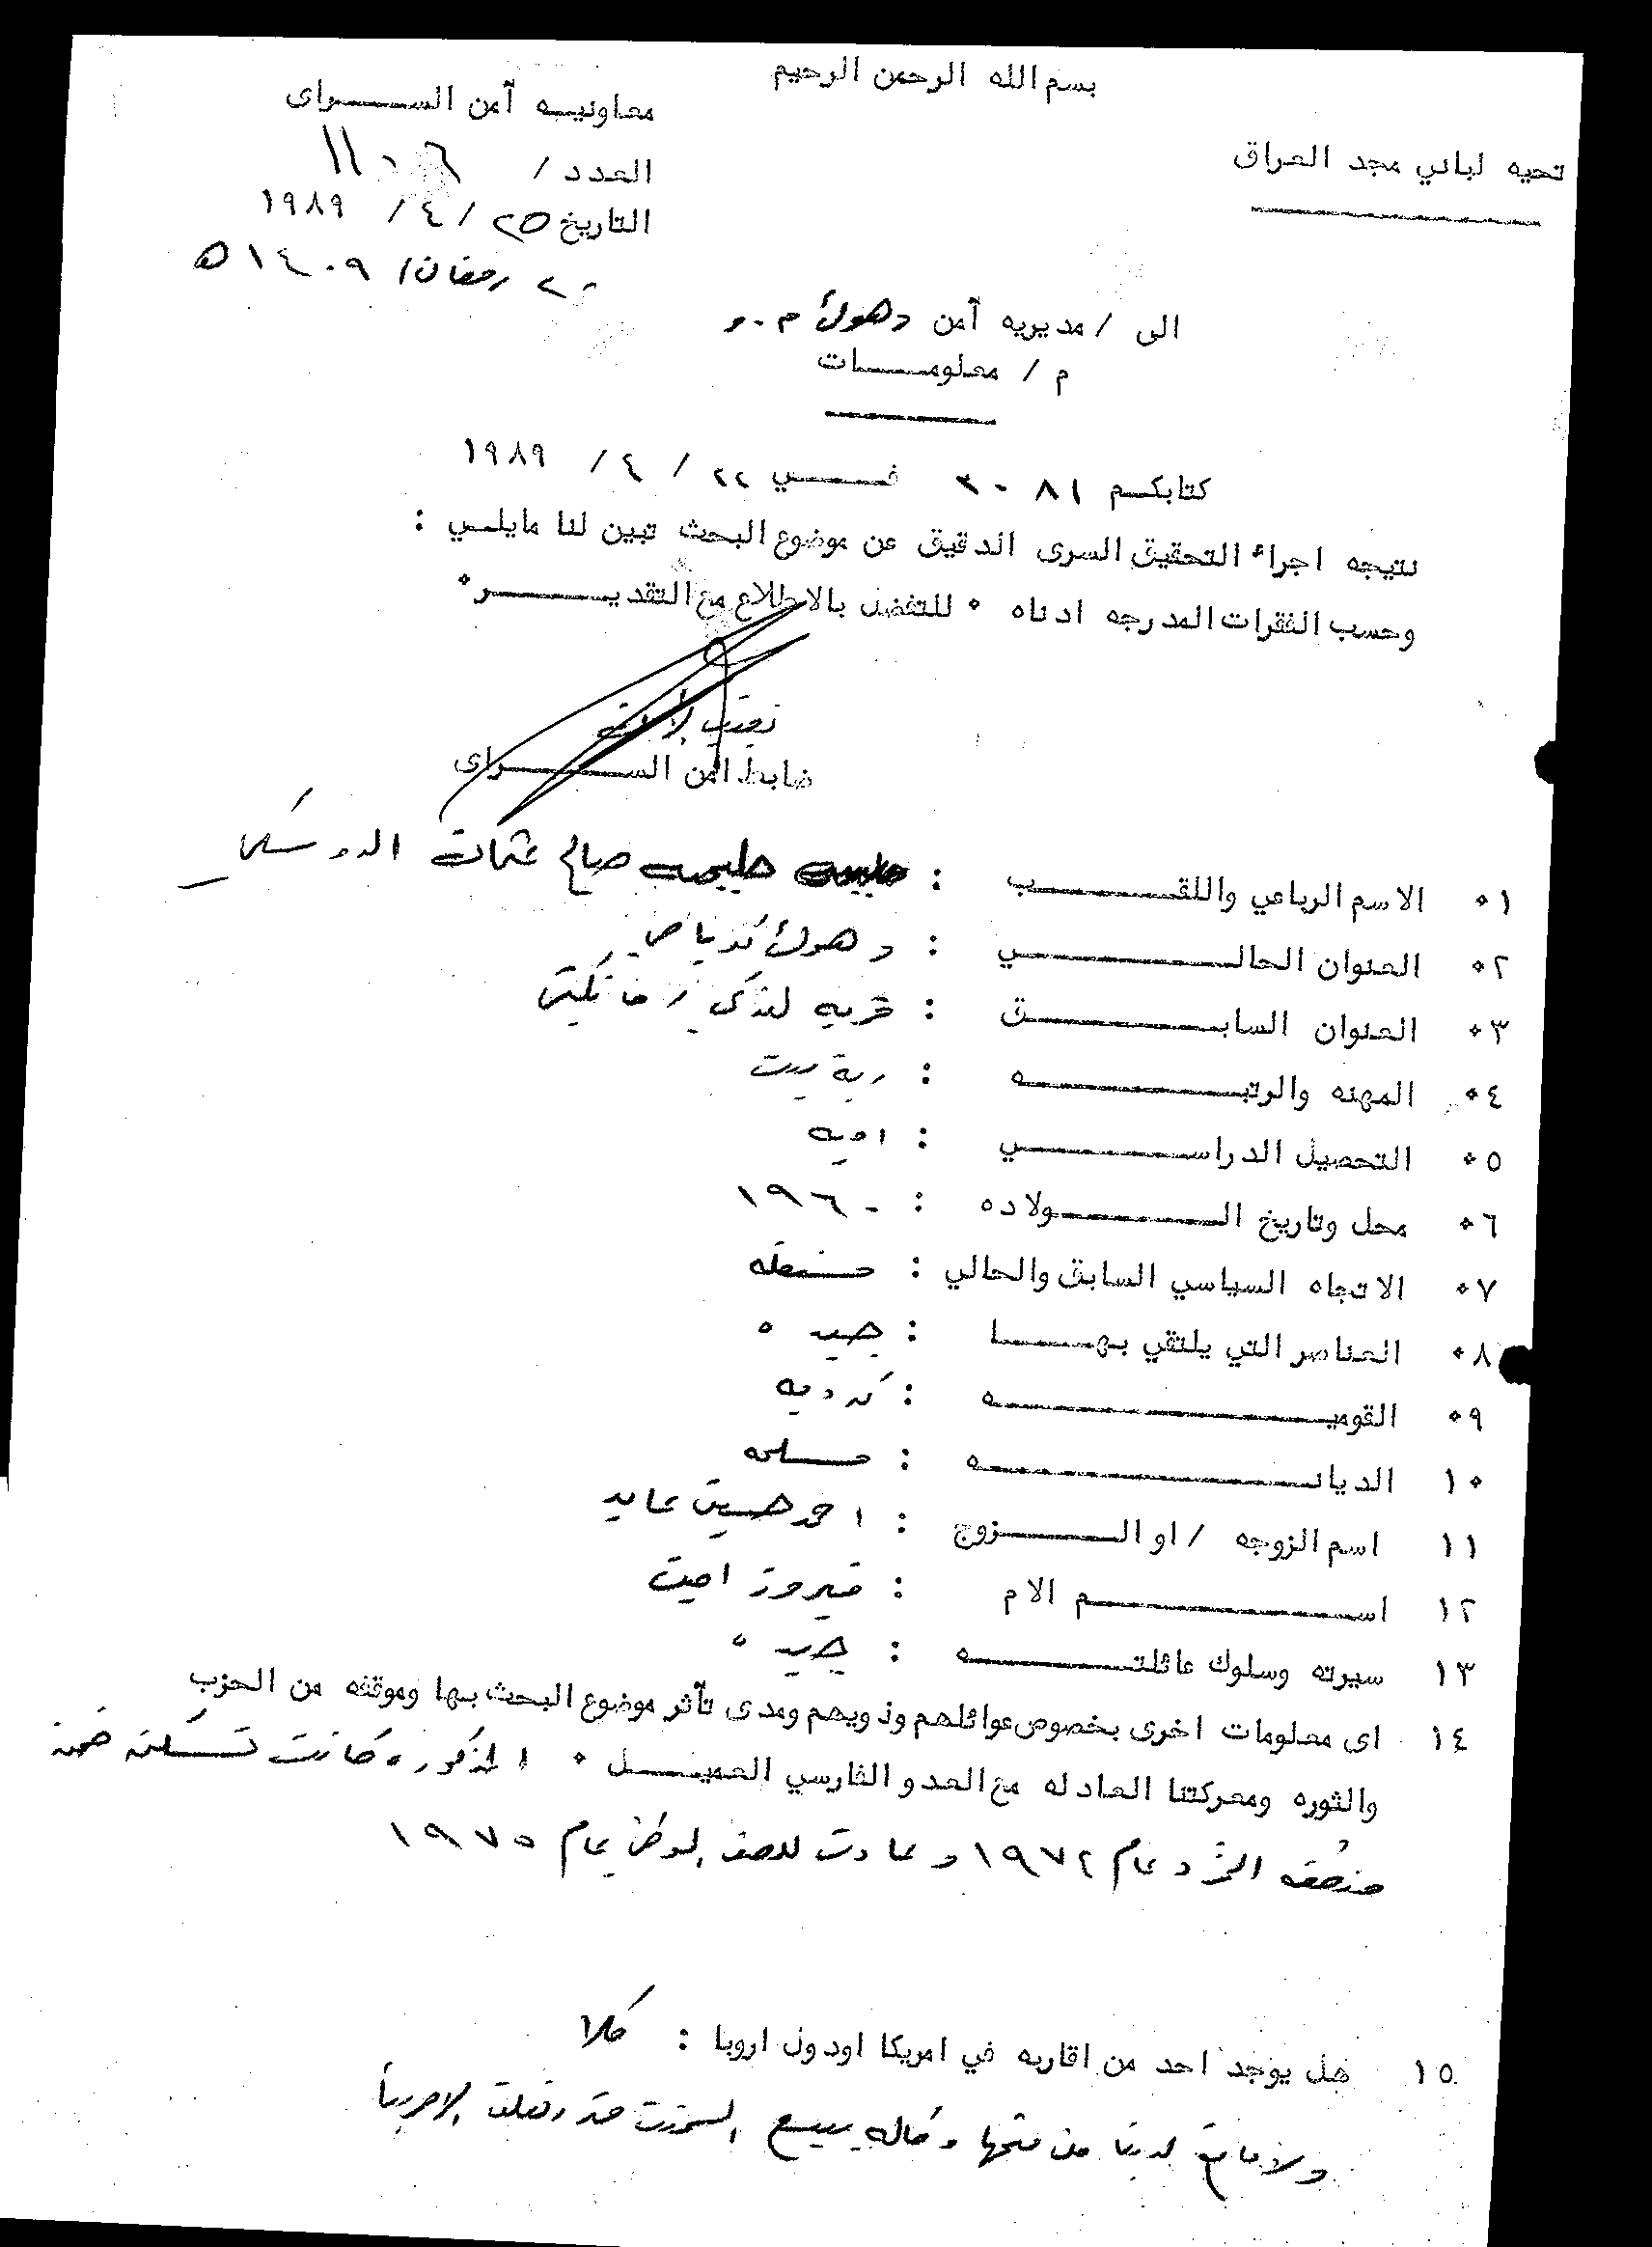 بسم الله الرحمن الرحيم
معاونيه آمن الســراى
تحيه لباني مجد العراق
العدد / ١١٠٦
التاريخ ٢٥ / ٤ / ١٩٨٩
رمضان / ١٤٠٩ ه
الى / مديريه آمن دهوك م.و
م / معلومــات
كتابكم ٣٠٨١ فــي ٢٢ / ٤ / ١٩٨٩
نتيجه اجراء التحقيق السرى الدقيق عن موضوع البحث تبين لنا مايلــي :
وحسب الفقرات المدرجه ادناه ٠ للتفضل بالاطلاع مع التقديــر ٠
نقيب الامن
ضابط امن الســراى
٠١ الاسم الرباعي واللقــب : حليمه صالح عثمان الدوسكي
٠٢ العنوان الحالــي : دهوك
٠٣ العنوان السابــق : قريه / مانكيش
٠٤ المهنه والرتبــه : ربة بيت
٠٥ التحصيل الدراســي : اميه
٠٦ محل وتاريخ الــولاده : ١٩٦٠
٠٧ الاتجاه السياسي السابق والحالي : مستقله
٠٨ العناصر التي يلتقي بهــا : جيد ٠
٠٩ القوميــه : كرديه
١٠ الديانــه : مسلمه
١١ اسم الزوجه / او الــزوج : احمد حسين عابد
١٢ اســم الام : فيروز امين
١٣ سيرته وسلوك عائلتــه : جيد ٠
١٤ اى معلومات اخرى بخصوص عوائلهم وذويهم ومدى تآثر موضوع البحث بها وموقفه من الحزب
والثوره ومعركتنا العادله مع العدو الفارسي العميــل ٠ المذكوره كانت تسكن ضمن
منطقه التمرد عام ١٩٧٢ وعادت للصف الوطني عام ١٩٧٥
١٥ هل يوجد احد من اقاربه في امريكا اودول اروبا : كلا
ولامانع لدينا من منحها وكاله بيع